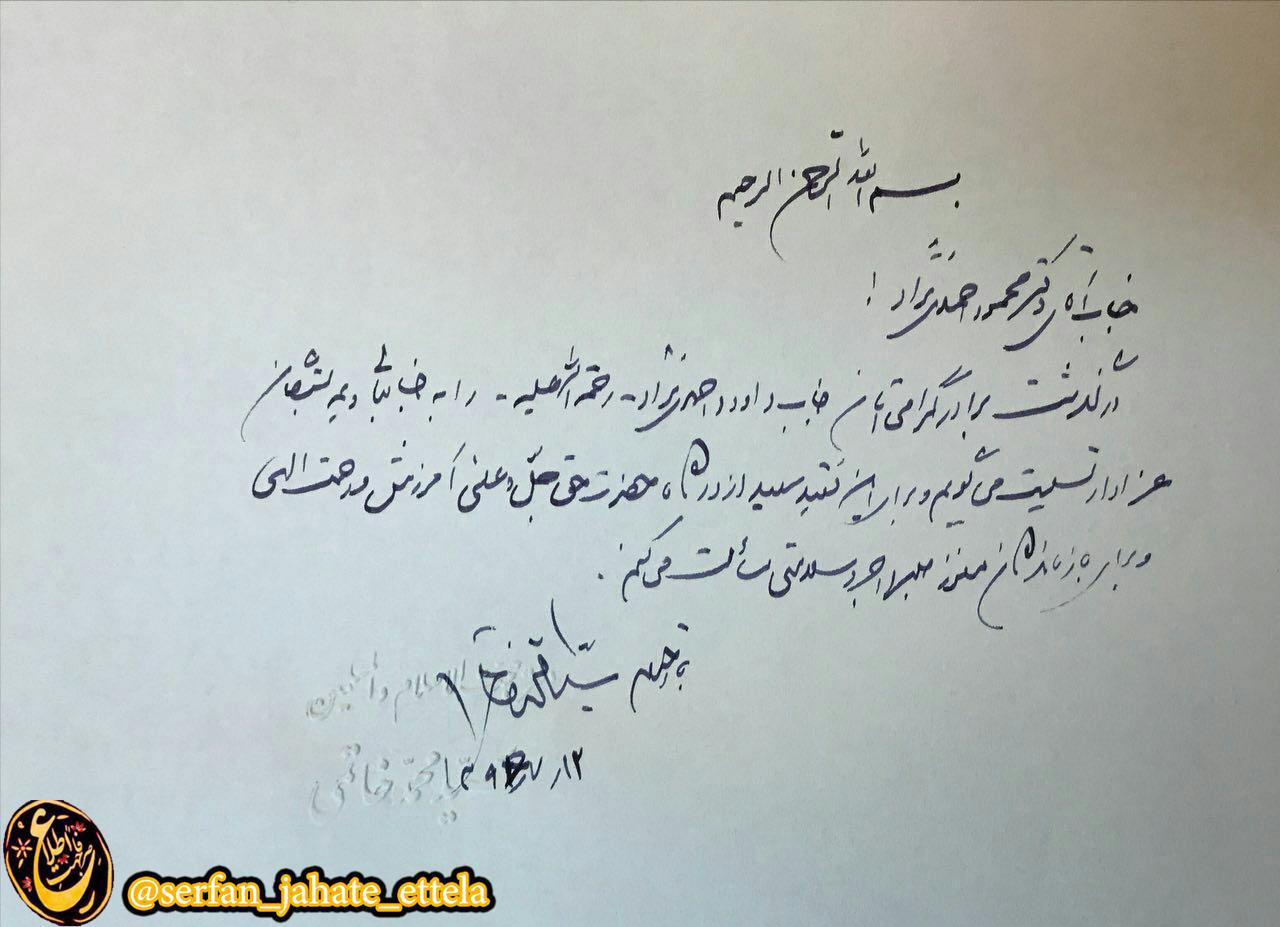 بسم الله الرحمن الرحیم
جناب آقای دکتر محمود احمدی نژاد!
درگذشت برادر گرامی‌تان جناب داوود احمدی نژاد - رحمة الله علیه - را به جنابعالی و همه بستگان
عزادار تسلیت می‌گویم و برای این فقید سعید از درگاه حضرت حق جلّ و علی آمرزش و رحمت الهی
و برای بازماندگان معزز صبر و اجر و سلامتی مسألت می‌کنم.
سید محمد خاتمی
حجت الاسلام والمسلمین
سید محمد خاتمی
صرفاً جهت اطلاع
@serfan_jahate_ettela